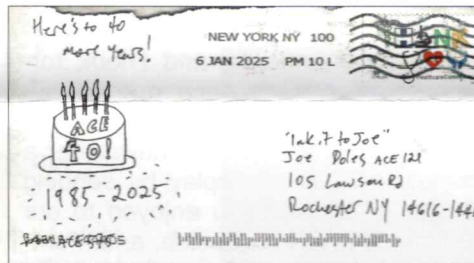 Here's to 40
more years!
NEW YORK NY 100
6 JAN 2025 PM 10 L
ACE
40!
1985-2025
"Ink.it to Joe"
Joe Doles ACE 121
105 Lawson Rd
Rochester NY 14616-144